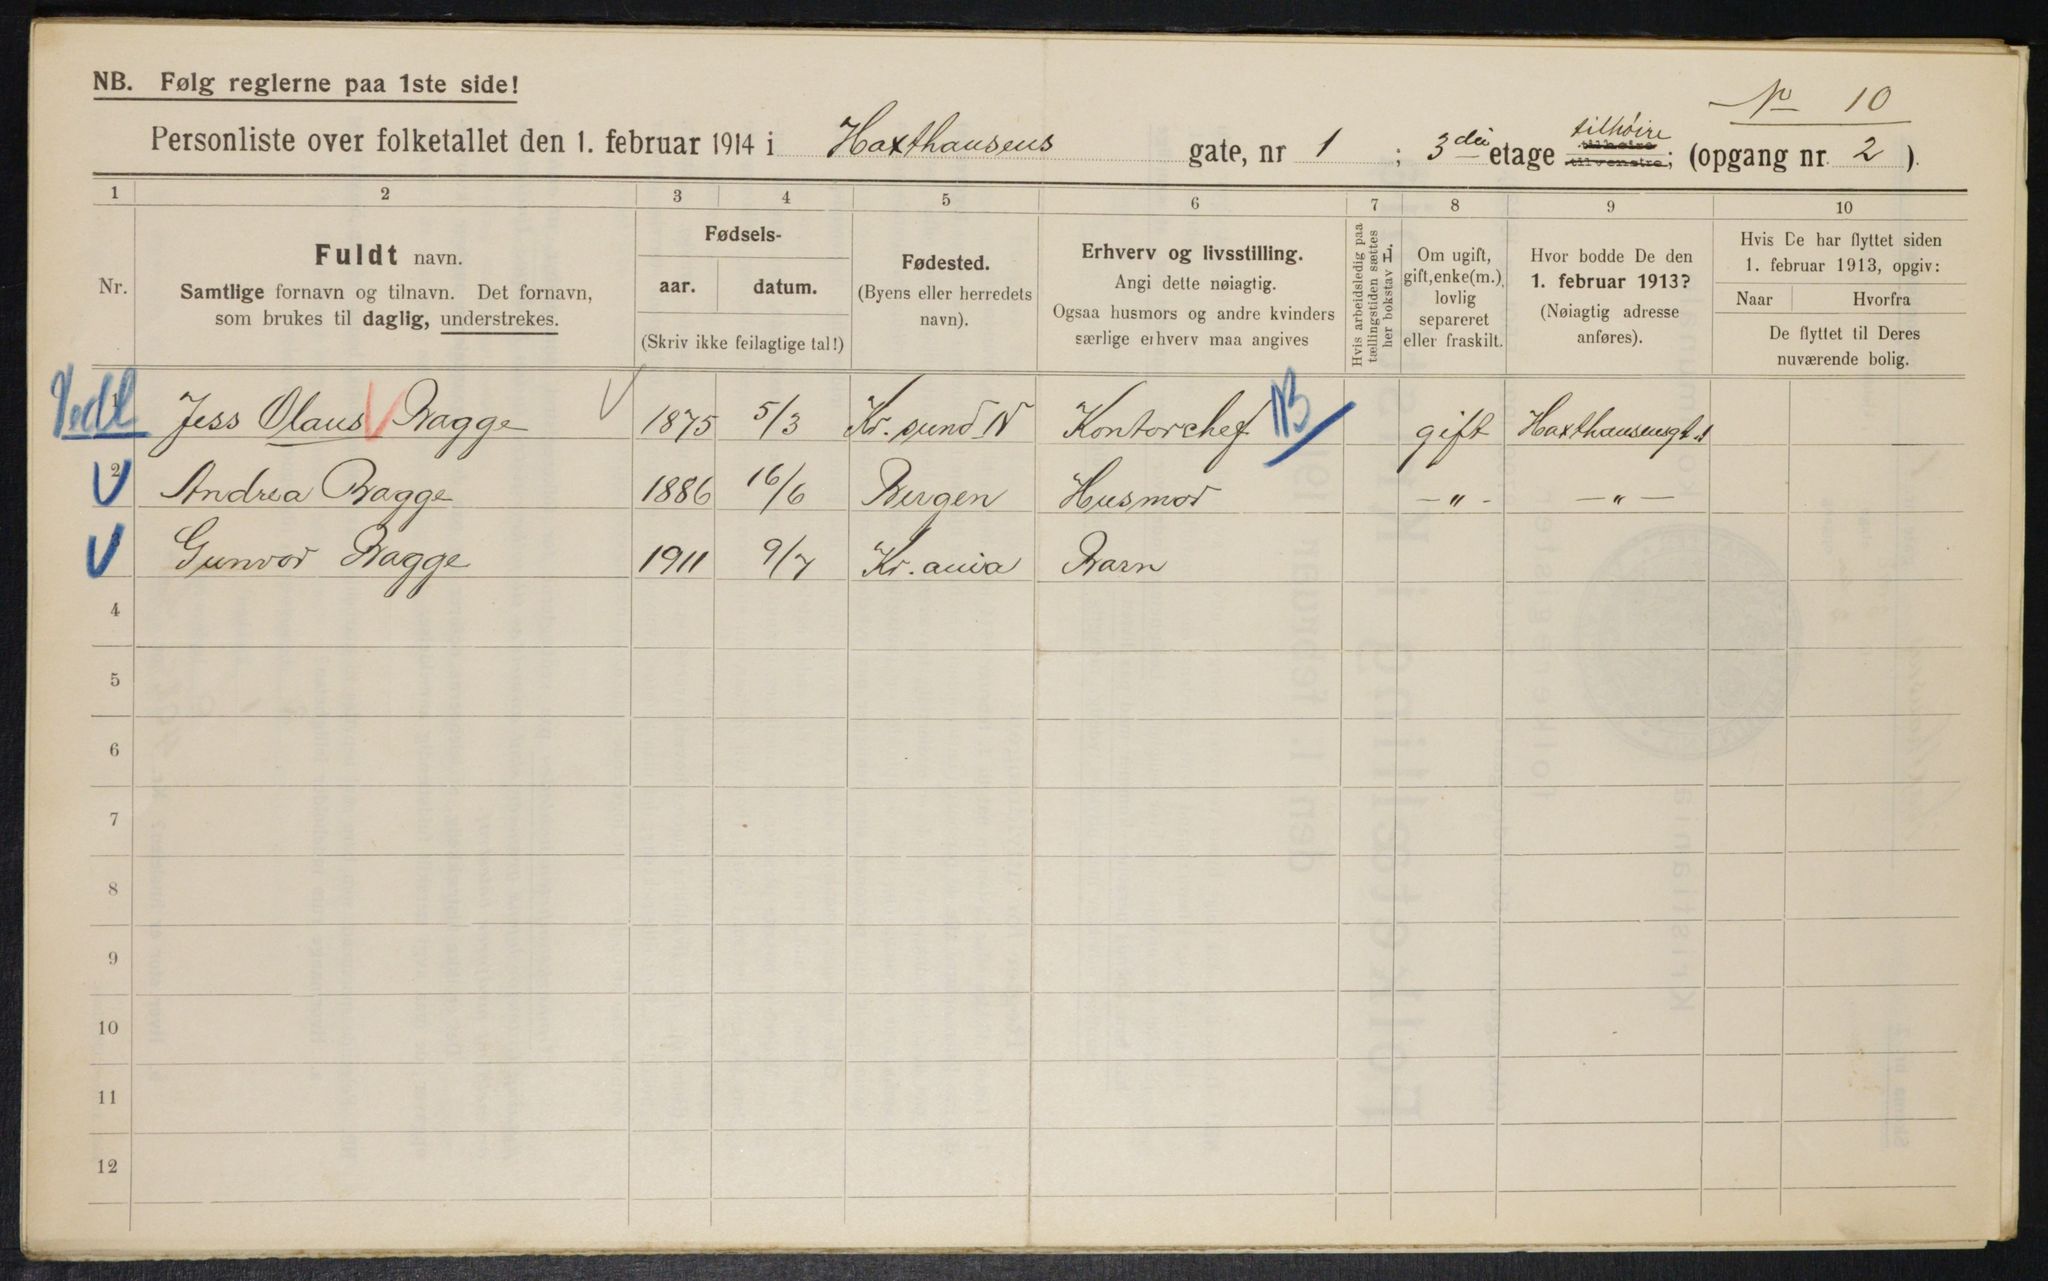 NB. Følg reglerne paa 1ste side!
No 10
Personliste over folketallet den 1. februar 1914 i Haxthausens gate, nr 1 ; 3die etage tilhøire tilhøire tilvenstre; (opgang nr. 2 ).
1 2 3 4 5 6 7 8 9 10
Nr.
Fuldt navn.
Samtlige fornavn og tilnavn. Det fornavn,
som brukes til daglig, understrekes.
Fødsels-
aar. datum.
(Skriv ikke feilagtige tal!)
Fødested.
(Byens eller herredets
navn).
Erhverv og livsstilling.
Angi dette nøiagtig.
Ogsaa husmors og andre kvinders
særlige erhverv maa angives
Hvis arbeidsledig paa
tællingstiden sættes
her bokstav L.
Om ugift,
gift, enke(m.),
lovlig
separeret
eller fraskilt.
Hvor bodde De den
1. februar 1913?
(Nøiagtig adresse
anføres).
Hvis De har flyttet siden
1. februar 1913, opgiv:
Naar Hvorfra
De flyttet til Deres
nuværende bolig.
Vedl
1 Jess Olaus Bagge 1875 5/3 Kr. sund N Kontorchef NB gift Haxthausensgt. 1
2 Andrea Bagge 1886 16/6 Bergen Husmor — " - — " —
3 Gunvor Bagge 1911 9/7 Kr. ania Barn
4
5
6
7
8
9
10
11
12